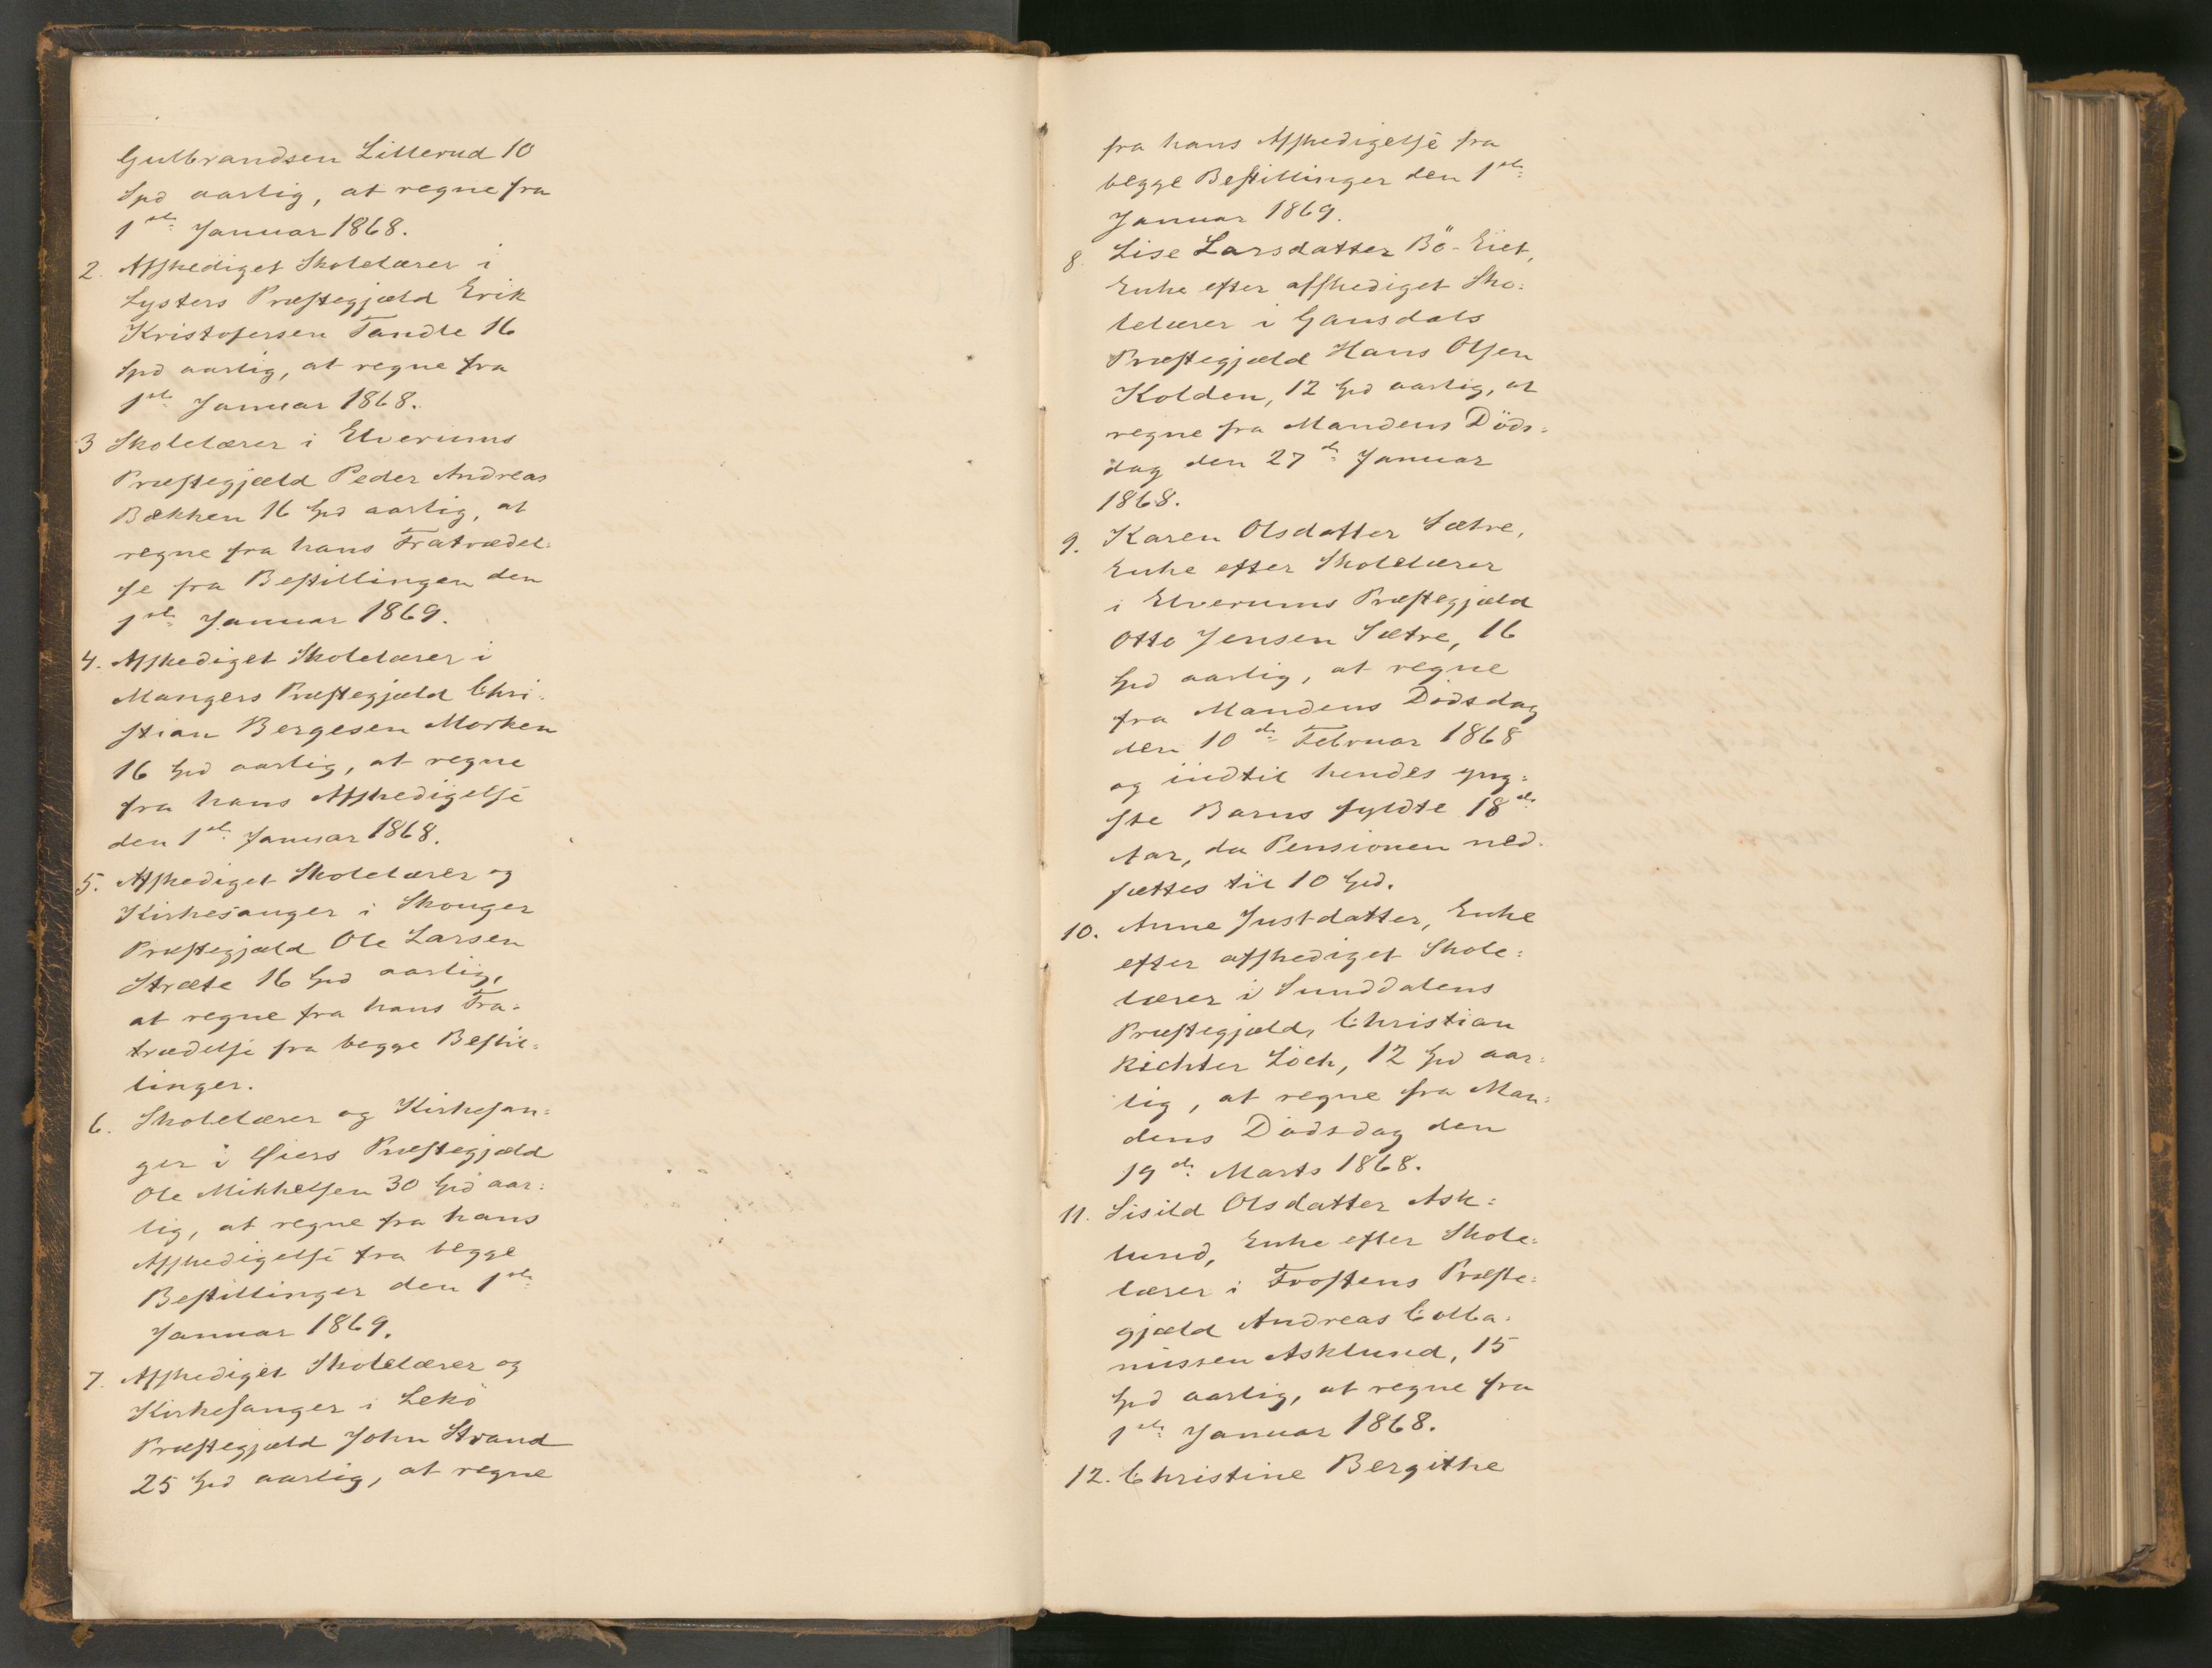 Gulbrandsen Lillerud 10
Spd aarlig, at regne fra
1ste Januar 1868.
2. Afskediget Skolelærer i
Lysters Præstegjæld Erik
Kristofersen Tandle 16
Spd aarlig, at regne fra
1ste Januar 1868.
3 Skolelærer i Elverums
Præstegjæld Peder Andreas
Bækken 16 Spd aarlig, at
regne fra hans Fratrædel-
se fra Bestillingen den
1ste Januar 1869.
4. Afskediget Skolelærer i
Mangers Præstegjæld Chri-
stian Bergesen Morken
16 Spd aarlig, at regne
fra hans Afskedigelse
den 1ste Januar 1868.
5. Afskediget Skolelærer og
Kirkesanger i Skouger
Præstegjæld Ole Larsen
Stræte 16 Spd aarlig,
at regne fra hans Fra-
trædelse fra begge Bestil-
linger.
6. Skolelærer og Kirkesan-
ger i Øiers Præstegjæld
Ole Mikkelsen 30 Spd aar-
lig, at regne fra hans
Afskedigelse fra begge
Bestillinger den 1ste
Januar 1869.
7. Afskediget Skolelærer og
Kirkesanger i Lekö
Præstegjæld John Strand
25 Spd aarlig, at regne
fra hans Afskedigelse fra
begge Bestillinger den 1ste
Januar 1869.
8. Lise Larsdatter Bö-Eiet,
Enke efter afskediget Sko-
lelærer i Gausdals
Præstegjæld Hans Olsen
Kolden, 12 Spd aarlig, at
regne fra Mandens Döds-
dag den 27de Januar
1868.
9. Karen Olsdatter Sætre,
Enke efter Skolelærer
i Elverums Præstegjæld
Otto Jensen Sætre, 16
Spd aarlig, at regne
fra Mandens Dødsdag
den 10de Februar 1868
og indtil hendes yng-
ste Barns fyldte 18de
Aar, da Pensionen ned-
sættes til 10 Spd.
10. Anne Justdatter, Enke
efter afskediget Skole-
lærer i Sunddalens
Præstegjæld, Christian
Richter Löch, 12 Spd aar-
lig, at regne fra Man-
dens Dødsdag den
19de Marts 1868.
11. Sisild Olsdatter Ask-
lund, Enke efter Skole-
lærer i Frostens Præste-
gjæld Andreas Colba-
nussen Asklund, 15
Spd aarlig, at regne fra
1ste Januar 1868.
12. Christine Bergithe